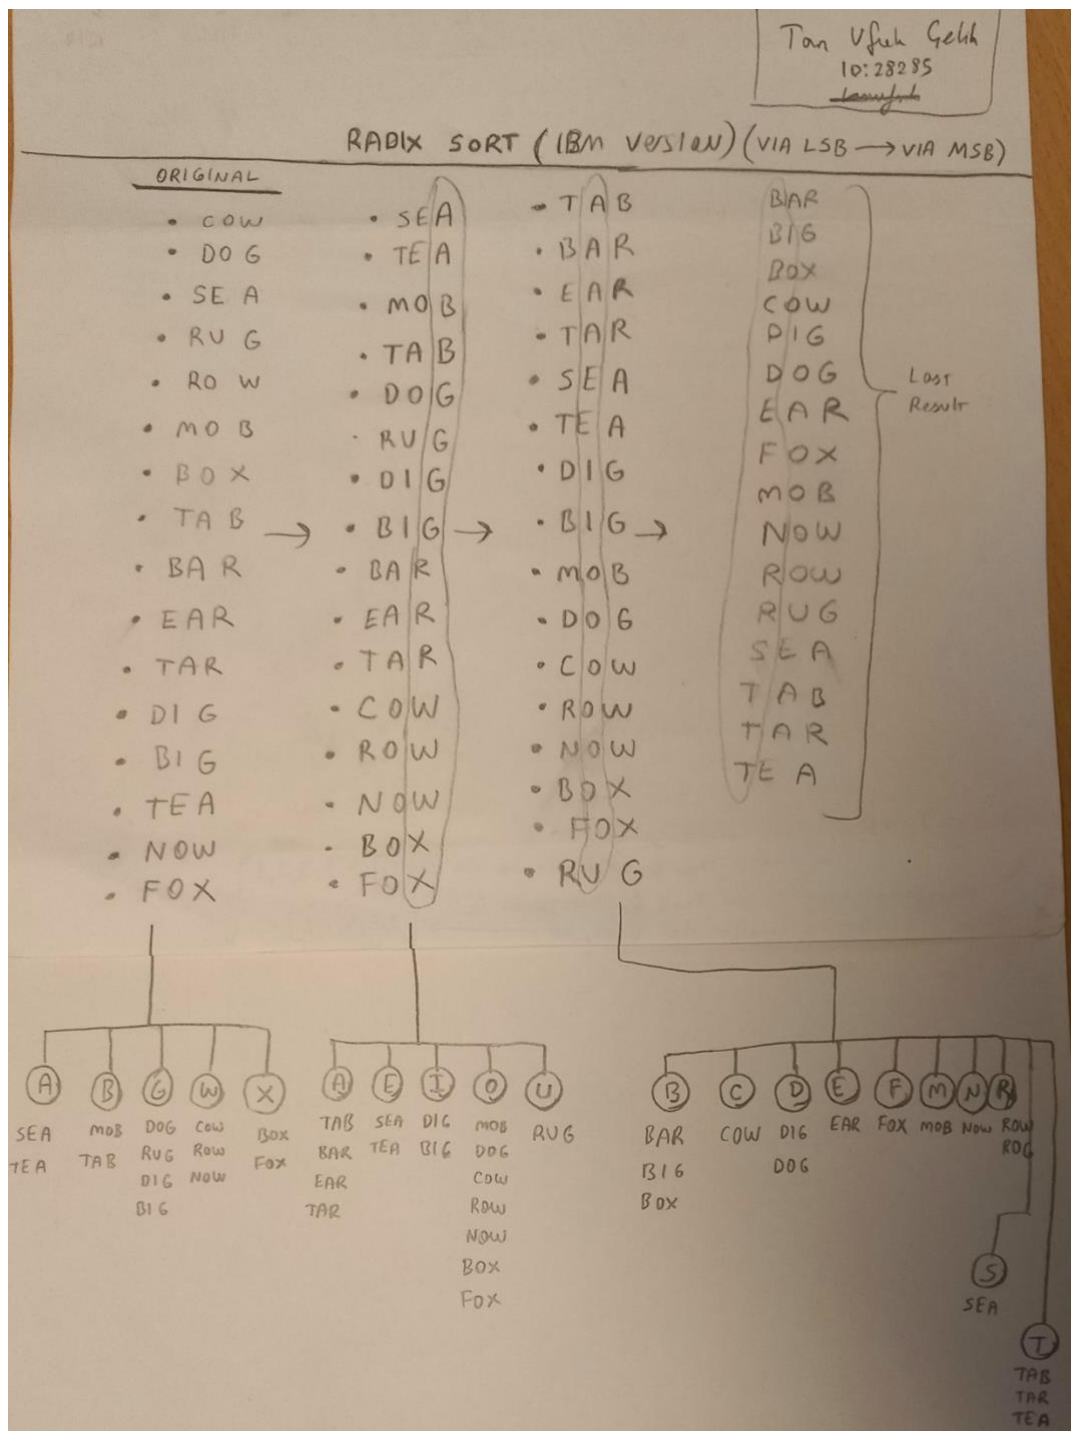 Tan Ufuk Çelik
ID:28285
RADIX SORT (IBM Version) (VIA LSB → VIA MSB)
ORIGINAL
• COW
• DOG
• SEA
• RUG
• ROW
• MOB
• BOX
• TAB
• BAR
• EAR
• TAR
• DIG
• BIG
• TEA
• NOW
• FOX
→
• SEA
• TEA
• MOB
• TAB
• DOG
• RUG
• DIG
• BIG
• BAR
• EAR
• TAR
• COW
• ROW
• NOW
• BOX
• FOX
→
• TAB
• BAR
• EAR
• TAR
• SEA
• TEA
• DIG
• BIG
• MOB
• DOG
• COW
• ROW
• NOW
• BOX
• FOX
• RUG
→
BAR
BIG
BOX
COW
DIG
DOG
EAR
FOX
MOB
NOW
ROW
RUG
SEA
TAB
TAR
TEA
Last
Result
A
SEA
TEA
B
MOB
TAB
G
DOG
RUG
DIG
BIG
W
COW
ROW
NOW
X
BOX
FOX
A
TAB
BAR
EAR
TAR
E
SEA
TEA
I
DIG
BIG
O
MOB
DOG
COW
ROW
NOW
BOX
FOX
U
RUG
B
BAR
BIG
BOX
C
COW
D
DIG
DOG
E
EAR
F
FOX
M
MOB
N
NOW
R
ROW
ROG
S
SEA
T
TAB
TAR
TEA